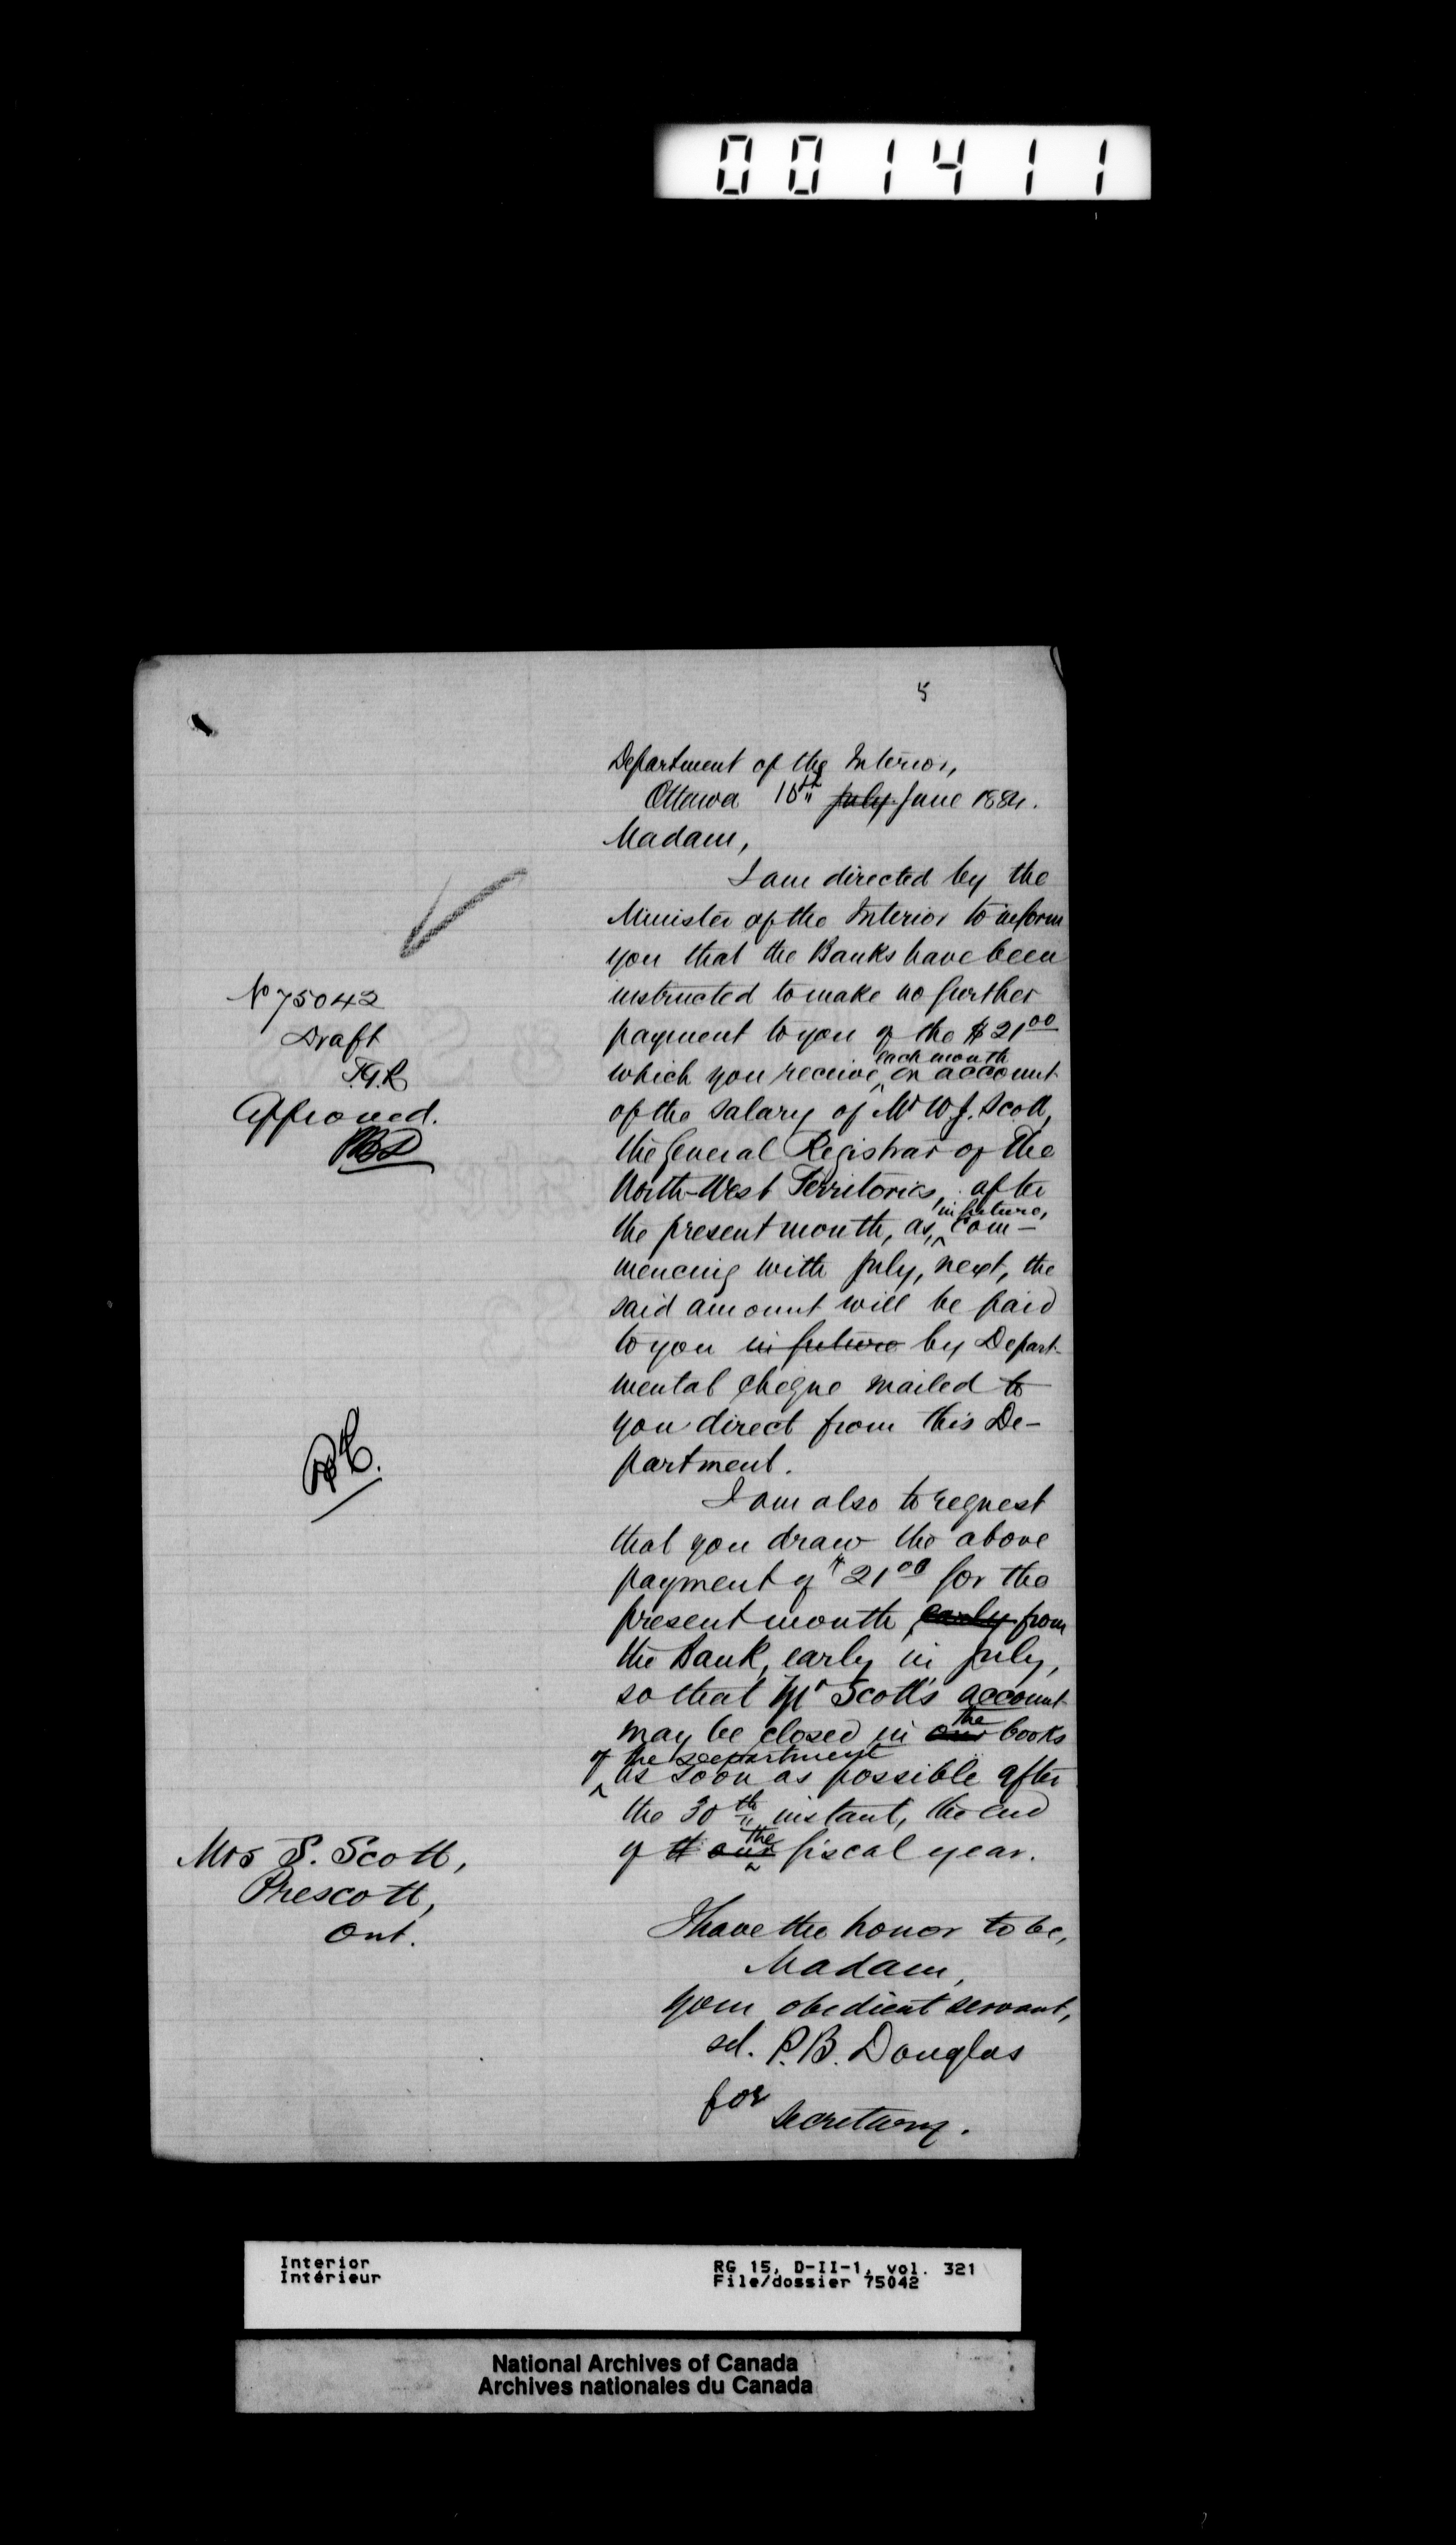 001411
5
Department of the Interior,
Ottawa 10th July June 1884.
Madam,
I am directed by the
Minister of the Interior to inform
you that the Banks have been
instructed to make no further
payment to you of the $21 00
each month
which you receive, on account
of the salary of Mr W J. Scott,
the General Registrar of the
North-West Territories, after
in future,
the present month, as, com-
mencing with July, next, the
said amount will be paid
to you in future by Depart-
mental cheque mailed to
you direct from this De-
partment.
I am also to request
that you draw the above
payment of $21 00 for the
present month, early from
the Bank, early in July,
so that Mr Scott's account
the
may be closed in our books
of the Department
as soon as possible after
the 30th instant, the end
the
of th our fiscal year.
I have the honor to be,
Madam,
your obedient servant,
sd. P. B. Douglas
for
Secretary.
No 75042
Draft
T.G.R
Approved.
PBD
Mrs S. Scott,
Prescott,
Ont.
Interior
Intérieur
RG 15, D-II-1, vol. 321
File/dossier 75042
National Archives of Canada
Archives nationales du Canada